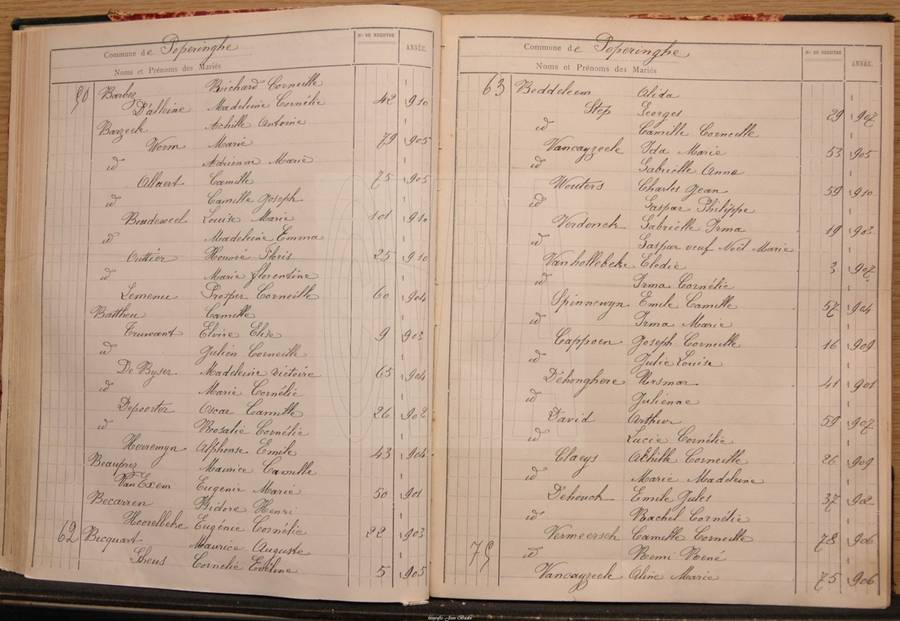 Commune de Poperinghe
Nos DE REGISTRE
ANNÉE.
Noms et Prénoms des Mariés
50 Barbez Richard Corneille
D'alleine Madeleine Cornélie 42 1910
Barzeele Achille Antoine
Worm Marie 79 1905
id Adrienne Marie
Allaert Camille 75 1905
id Camille Joseph
Beudeweel Louise Marie 101 1910
id Madeleine Emma
Outtier Honoré Floris 25 1910
id Marie florentine
Lemenu Prosper Corneille 60 1904
Battheu Camille
Truwant Elvire Elise 9 1903
id Julien Corneille
De Byser Madeleine Victoire 65 1904
id Marie Cornélie
Depoorter Oscar Camille 26 1902
id Rosalie Cornélie
Herremyn Alphonse Emile 43 1904
Beauprez Maurice Camille
Van Exem Eugenie Marie 50 1901
Becarren Isidore Henri
Hoorelbeke Eugénie Cornélie 22 1903
62 Becquart Maurice Auguste
Cornelie Eveline 5 1905
Commune de Poperinghe
Nos DE REGISTRE
ANNÉE.
Noms et Prénoms des Mariés
63 Beddeleem Alida
Step Georges 29 1907
id Camille Corneille
Vancayzeele Ida Marie 53 1905
id Gabrielle Anna
Wouters Charles Jean 59 1910
id Gaspar Philippe
Verdonck Gabrielle Irma 19 1903
id Gaspar veuf Noël Marie
Vanhollebeke Elodie 3 1907
id Irma Cornélie
Spinnewyn Emile Camille 57 1904
id Irma Marie
Cappoen Joseph Corneille 16 1909
id Julie Louise
D'ehonghere Rasmar 41 1901
id Julienne
David Arthur 59 1907
id Lucie Cornélie
Claeys Achille Corneille 26 1909
id Marie Madeleine
D'ehonck Emile Jules 37 1902
id Rachel Cornélie
Vermeersch Camille Corneille 78 1906
75 id Remi René
Vancayzeele Aline Marie 75 1906